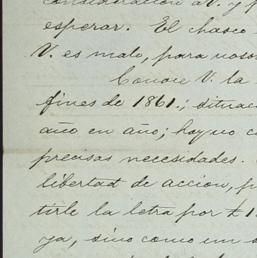 consideracion a V. y p
esperar. El chasco
V. es malo, para noso
Conoce V. la
fines de 1861.; situac
año en año; hoy no c
precisas necesidades.
libertad de accion, p
tirle la letra por £1.
ya, sino como un s